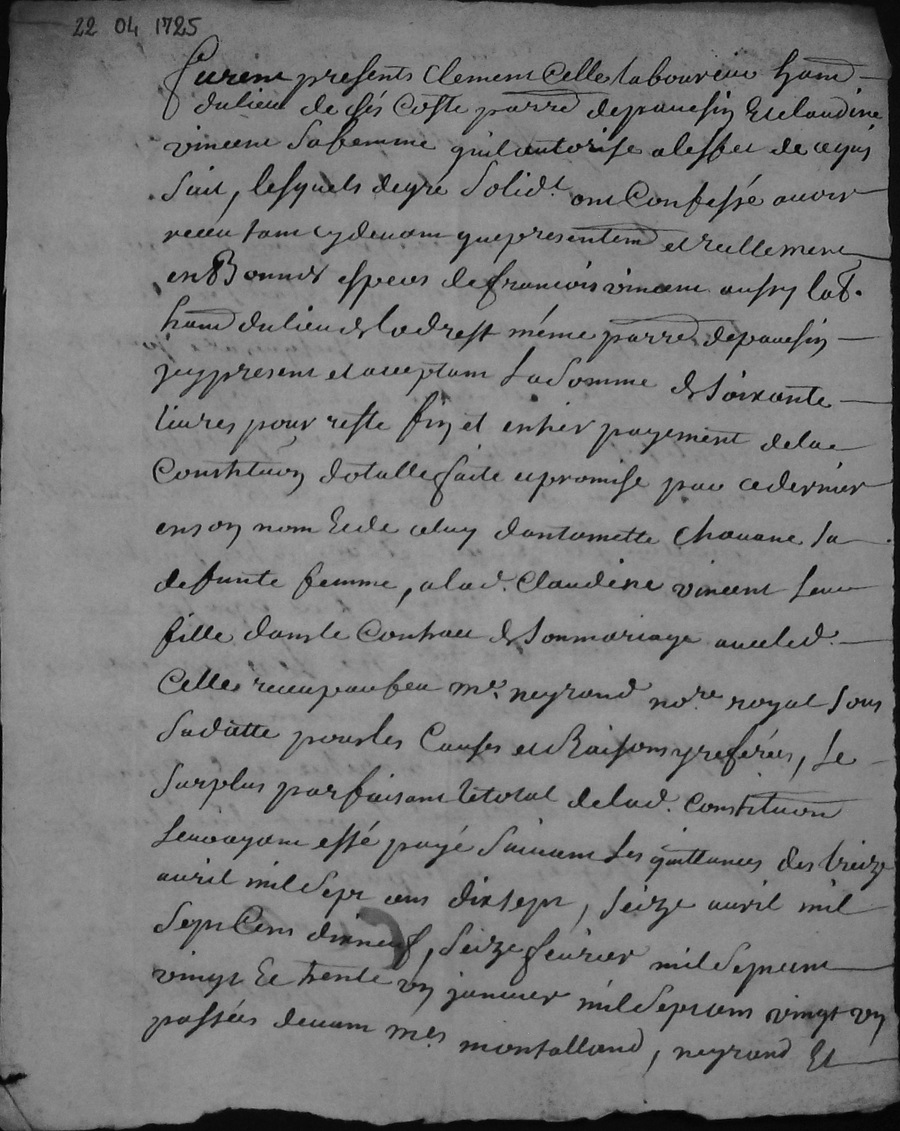 22 04 1725
furent presents Clement Celle laboureur hant
du lieu de Coste parre de pauesin Et claudine
vincent sa femme quil autorise a leffet de ce qui
Suit, lesquels de gre Solidt ont Confessé auoir
receu tant cydeuant que presentemt et reellement
en Bonnes especes de francois vincent aussy lab.
hant du lieu de même parre de pauesin
icy present et acceptant La Somme de Soixante
liures pour reste fin et entier payement de la
Constituon dotalle faite et promise par ce dernier
en son nom Et de celuy dantoinette Chauane sa
defunte femme, a lad. Claudine vincent leur
fille dans le Contract de Son mariage auec led.
Celle receu par feu me. neyrand nore. royal Sous
Sa datte pour les Causes et Raisons y referées, Le
Surplus parfaisant le total de lad. Constituon
Leur ayant esté payé Suiuant Les quittances des treize
auril mil Sept cens dix sept, Seize auril mil
Sept Cens dixneuf, Seize feurier mil Sept cent
vingt Et trente un januier mil Sept cens vingt un
passées deuant mes. montalland, neyrand Et